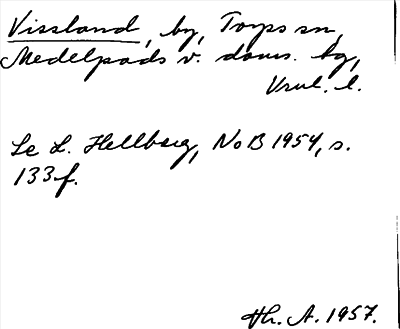 Vissland, by, Torps sn,
Medelpads v. doms. tg,
Vrnl. l.
Se L. Hellberg, NoB 1954, s.
133 f.
Hh. A. 1957.